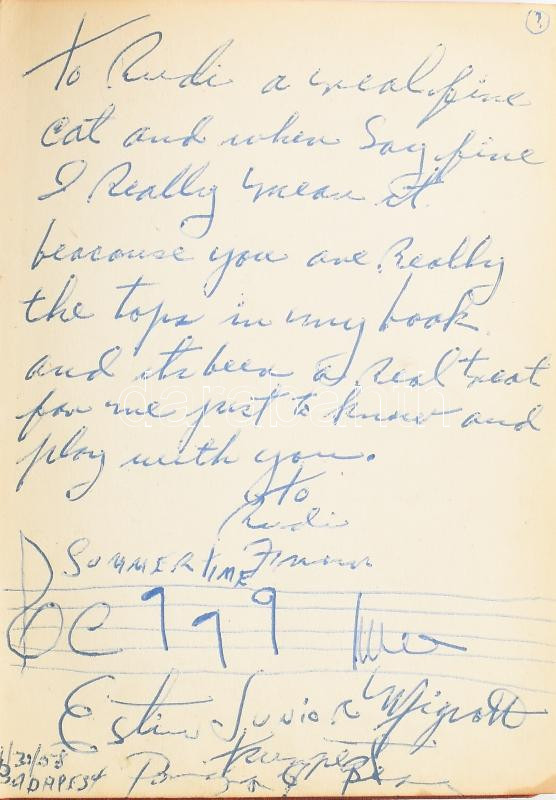 ?
To Rudi a real fine
cat and when Say fine
I Really mean it
beacause you are Really
the tops in my book
and its been a real treat
for me just to know and
play with you.
to
Rudi
From
SUMMERTIME
Junior
Trumpet
BUDAPEST